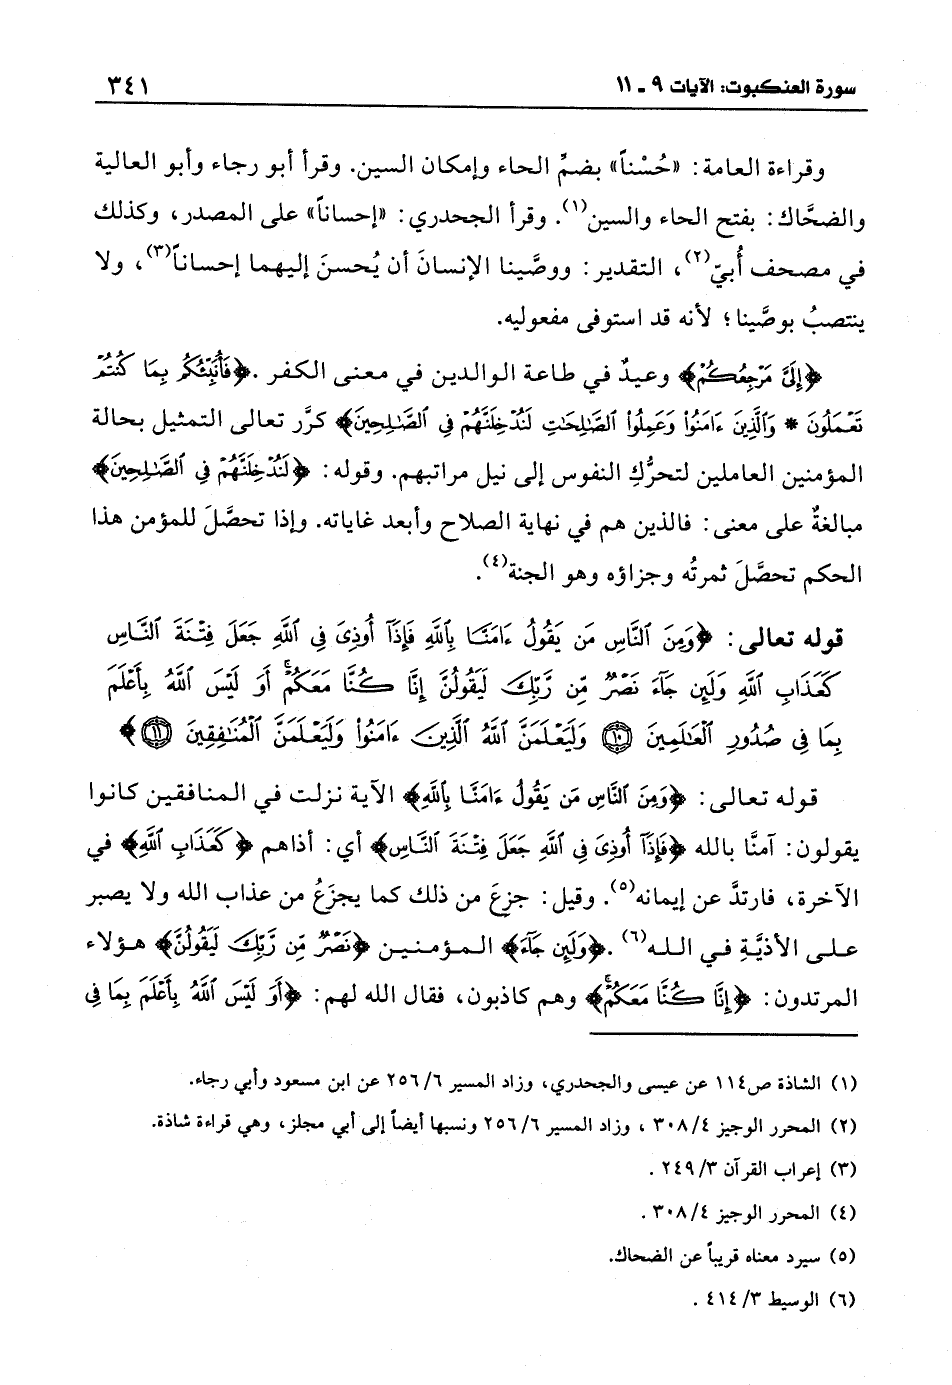 سورة العنكبوت: الآيات ٩ ـ ١١
٣٤١
وقراءة العامة: «حُسْناً» بضمِّ الحاء وإمكان السين. وقرأ أبو رجاء وأبو العالية
والضحَّاك: بفتح الحاء والسين(١). وقرأ الجحدري: «إحساناً» على المصدر، وكذلك
في مصحف أُبيّ(٢)، التقدير: ووصَّينا الإنسانَ أن يُحسنَ إليهما إحساناً(٣)، ولا
ينتصبُ بوصَّينا؛ لأنه قد استوفى مفعوليه.
﴿إِلَىَّ مَرْجِعُكُمْ﴾ وعيدٌ في طاعة الوالدين في معنى الكفر. ﴿فَأُنَبِّئُكُم بِمَا كُنتُمْ
تَعْمَلُونَ * وَٱلَّذِينَ ءَامَنُوا۟ وَعَمِلُوا۟ ٱلصَّـٰلِحَـٰتِ لَنُدْخِلَنَّهُمْ فِى ٱلصَّـٰلِحِينَ﴾ كرَّر تعالى التمثيل بحالة
المؤمنين العاملين لتحرُّكِ النفوس إلى نيل مراتبهم. وقوله: ﴿لَنُدْخِلَنَّهُمْ فِى ٱلصَّـٰلِحِينَ﴾
مبالغةٌ على معنى: فالذين هم في نهاية الصلاح وأبعد غاياته. وإذا تحصَّلَ للمؤمن هذا
الحكم تحصَّلَ ثمرتُه وجزاؤه وهو الجنة(٤).
قوله تعالى: ﴿وَمِنَ ٱلنَّاسِ مَن يَقُولُ ءَامَنَّا بِٱللَّهِ فَإِذَآ أُوذِىَ فِى ٱللَّهِ جَعَلَ فِتْنَةَ ٱلنَّاسِ
كَعَذَابِ ٱللَّهِ وَلَئِن جَآءَ نَصْرٌ مِّن رَّبِّكَ لَيَقُولُنَّ إِنَّا كُنَّا مَعَكُمْ ۚ أَوَ لَيْسَ ٱللَّهُ بِأَعْلَمَ
بِمَا فِى صُدُورِ ٱلْعَـٰلَمِينَ ١٠ وَلَيَعْلَمَنَّ ٱللَّهُ ٱلَّذِينَ ءَامَنُوا۟ وَلَيَعْلَمَنَّ ٱلْمُنَـٰفِقِينَ ١١﴾
قوله تعالى: ﴿وَمِنَ ٱلنَّاسِ مَن يَقُولُ ءَامَنَّا بِٱللَّهِ﴾ الآية نزلت في المنافقين كانوا
يقولون: آمنَّا بالله ﴿فَإِذَآ أُوذِىَ فِى ٱللَّهِ جَعَلَ فِتْنَةَ ٱلنَّاسِ﴾ أي: أذاهم ﴿كَعَذَابِ ٱللَّهِ﴾ في
الآخرة، فارتدَّ عن إيمانه(٥). وقيل: جزِعَ من ذلك كما يجزَعُ من عذاب الله ولا يصبر
على الأذيَّةِ في الله(٦). ﴿وَلَئِن جَآءَ﴾ المؤمنين ﴿نَصْرٌ مِّن رَّبِّكَ لَيَقُولُنَّ﴾ هؤلاء
المرتدون: ﴿إِنَّا كُنَّا مَعَكُمْ ۚ﴾ وهم كاذبون، فقال الله لهم: ﴿أَوَ لَيْسَ ٱللَّهُ بِأَعْلَمَ بِمَا فِى
(١) الشاذة ص١١٤ عن عيسى والجحدري، وزاد المسير ٢٥٦/٦ عن ابن مسعود وأبي رجاء.
(٢) المحرر الوجيز ٣٠٨/٤ ، وزاد المسير ٢٥٦/٦ ونسبها أيضاً إلى أبي مجلز، وهي قراءة شاذة.
(٣) إعراب القرآن ٢٤٩/٣ .
(٤) المحرر الوجيز ٣٠٨/٤ .
(٥) سيرد معناه قريباً عن الضحاك.
(٦) الوسيط ٤١٤/٣ .